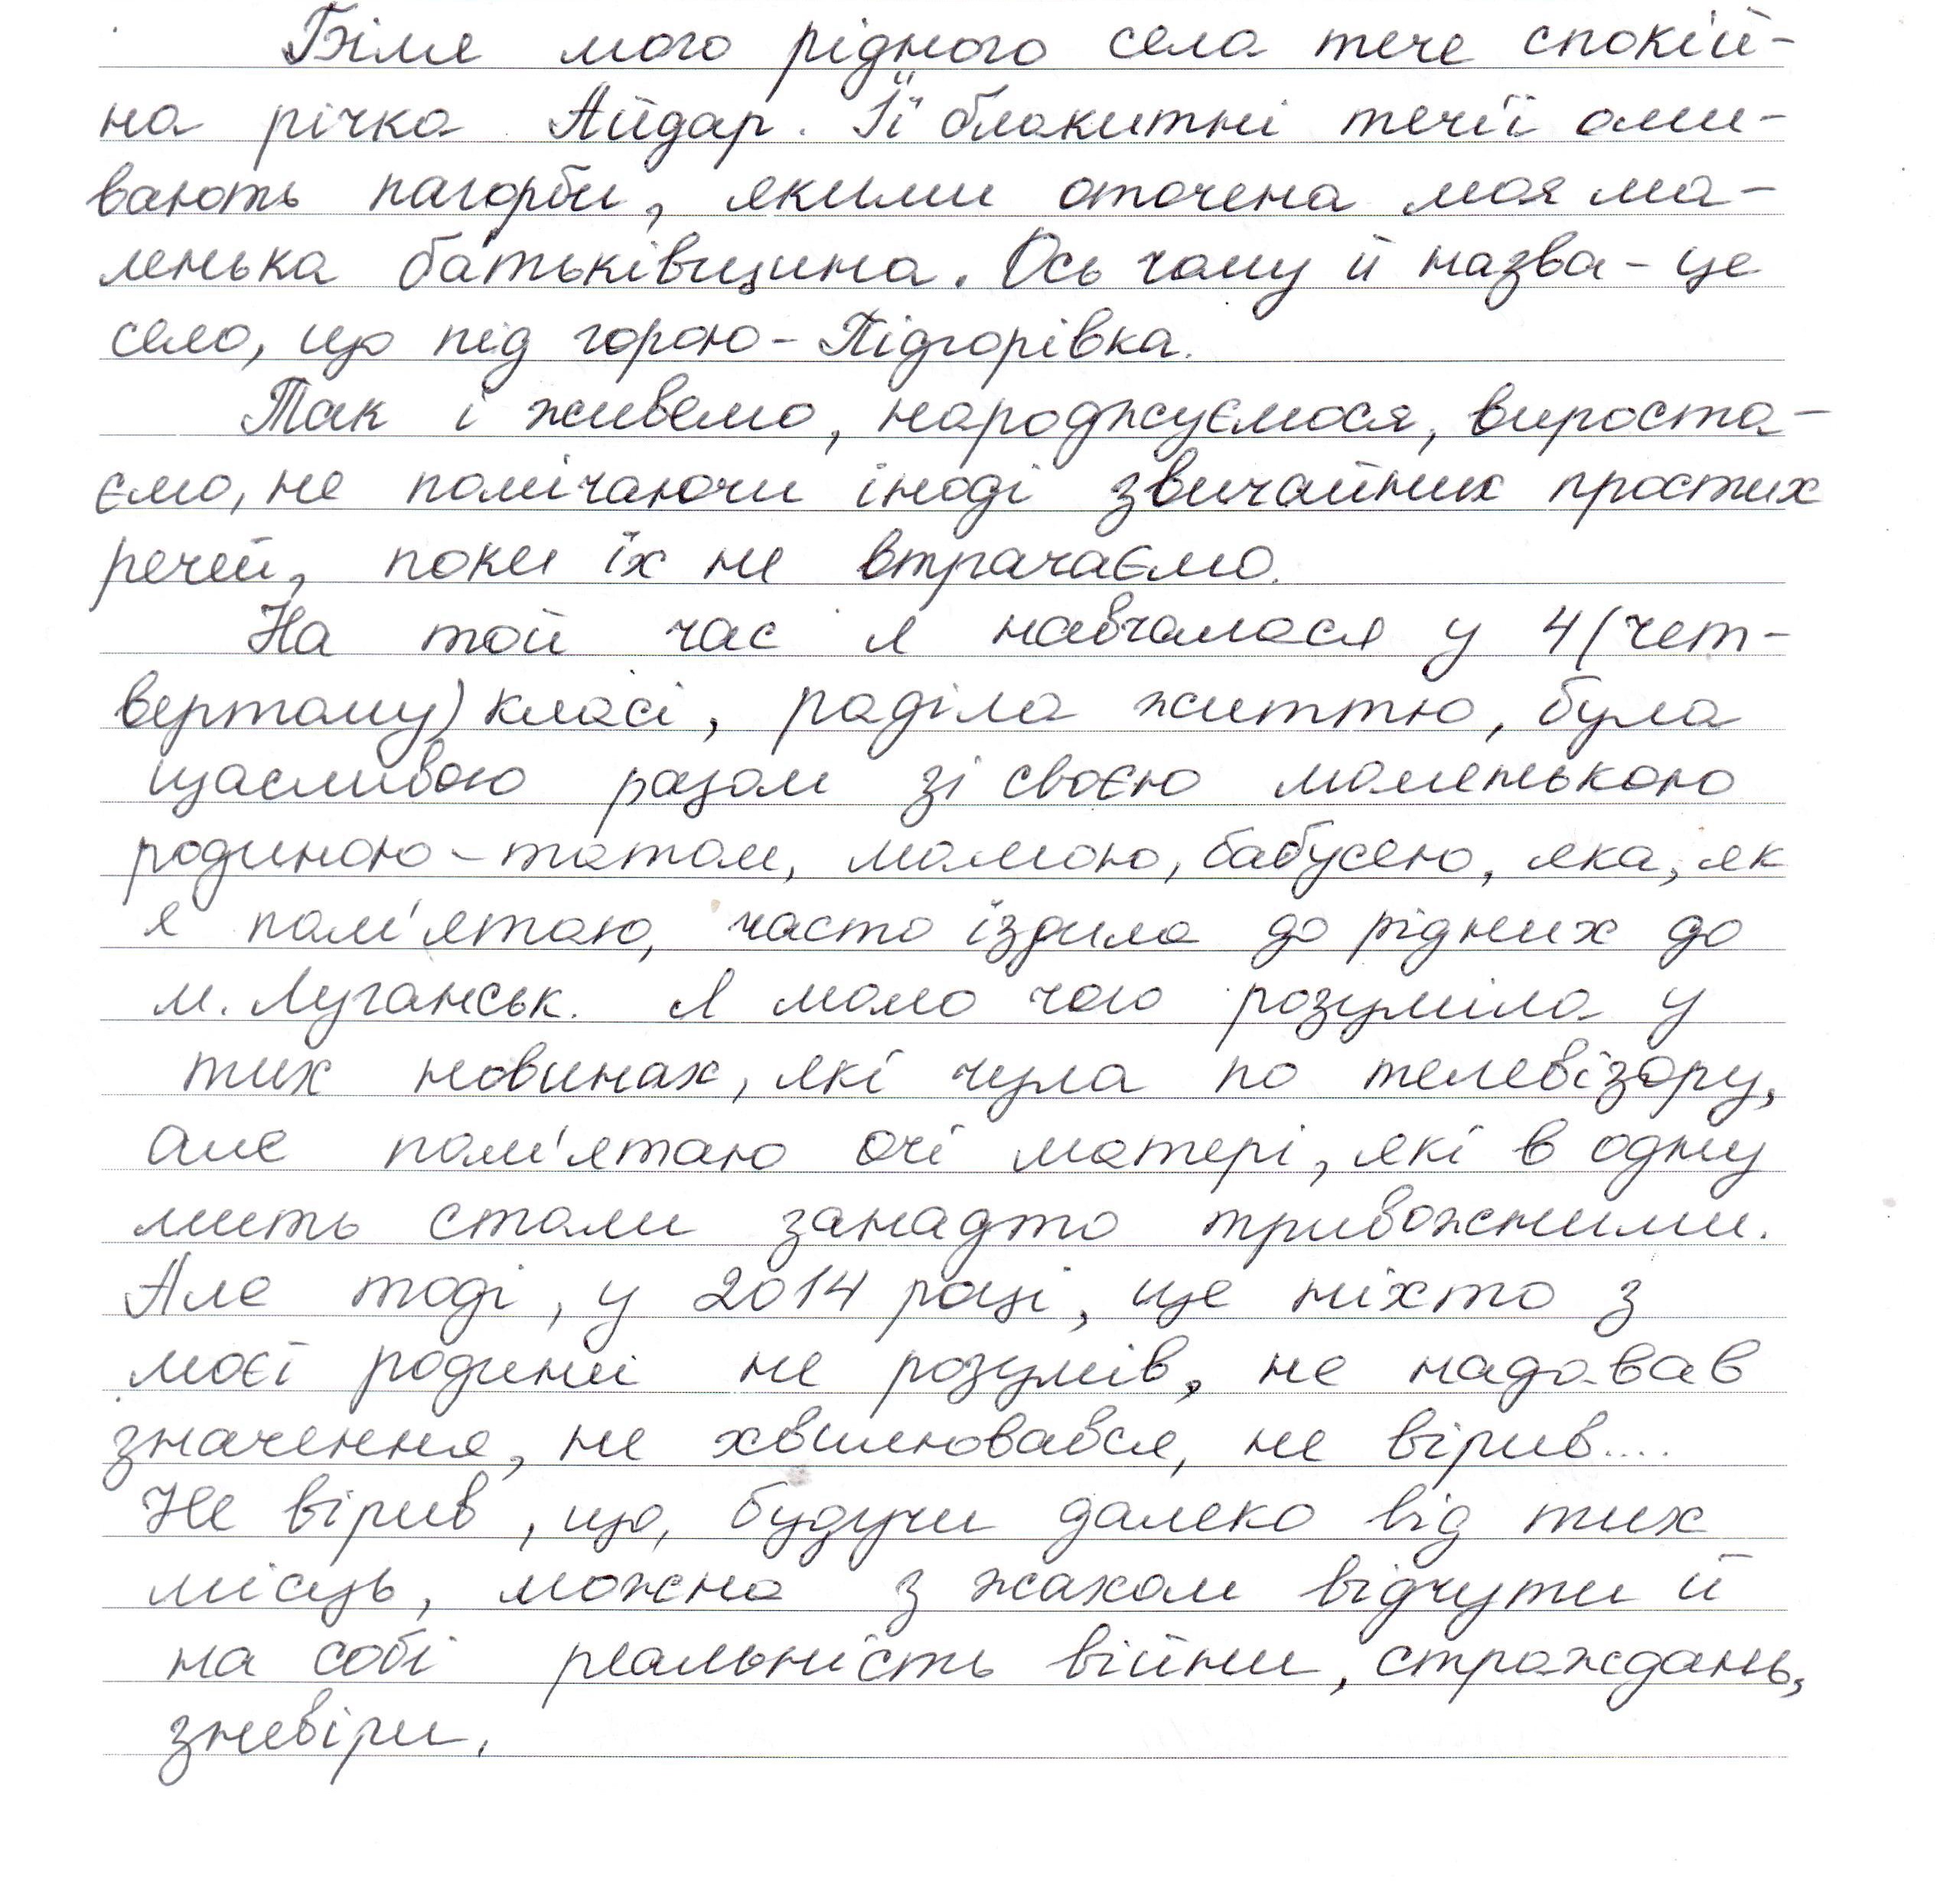 Біля мого рідного села тече спокій-
на річка Айдар. Її блакитні течії оми-
вають пагорби, якими оточена моя ма-
ленька батьківщина. Ось чому й назва - це
село, що під горою - Підгорівка.
Так і живемо, народжуємося, вироста-
ємо, не помічаючи іноді звичайних простих
речей, поки їх не втрачаємо.
На той час я навчалася у 4 (чет-
вертому) класі, раділа життю, була
щасливою разом зі своєю маленькою
родиною - татом, мамою, бабусею, яка, як
я пам'ятаю, часто їздила до рідних до
м. Луганськ. Я мало чого розуміла у
тих новинах, які чула по телевізору,
але пам'ятаю очі матері, які в одну
мить стали занадто тривожними.
Але тоді, у 2014 році, ще ніхто з
моєї родини не розумів, не надавав
значення, не хвилювався, не вірив....
Не вірив, що, будучи далеко від тих
місць, можна з жахом відчути й
на собі реальність війни, страждань,
зневіри.